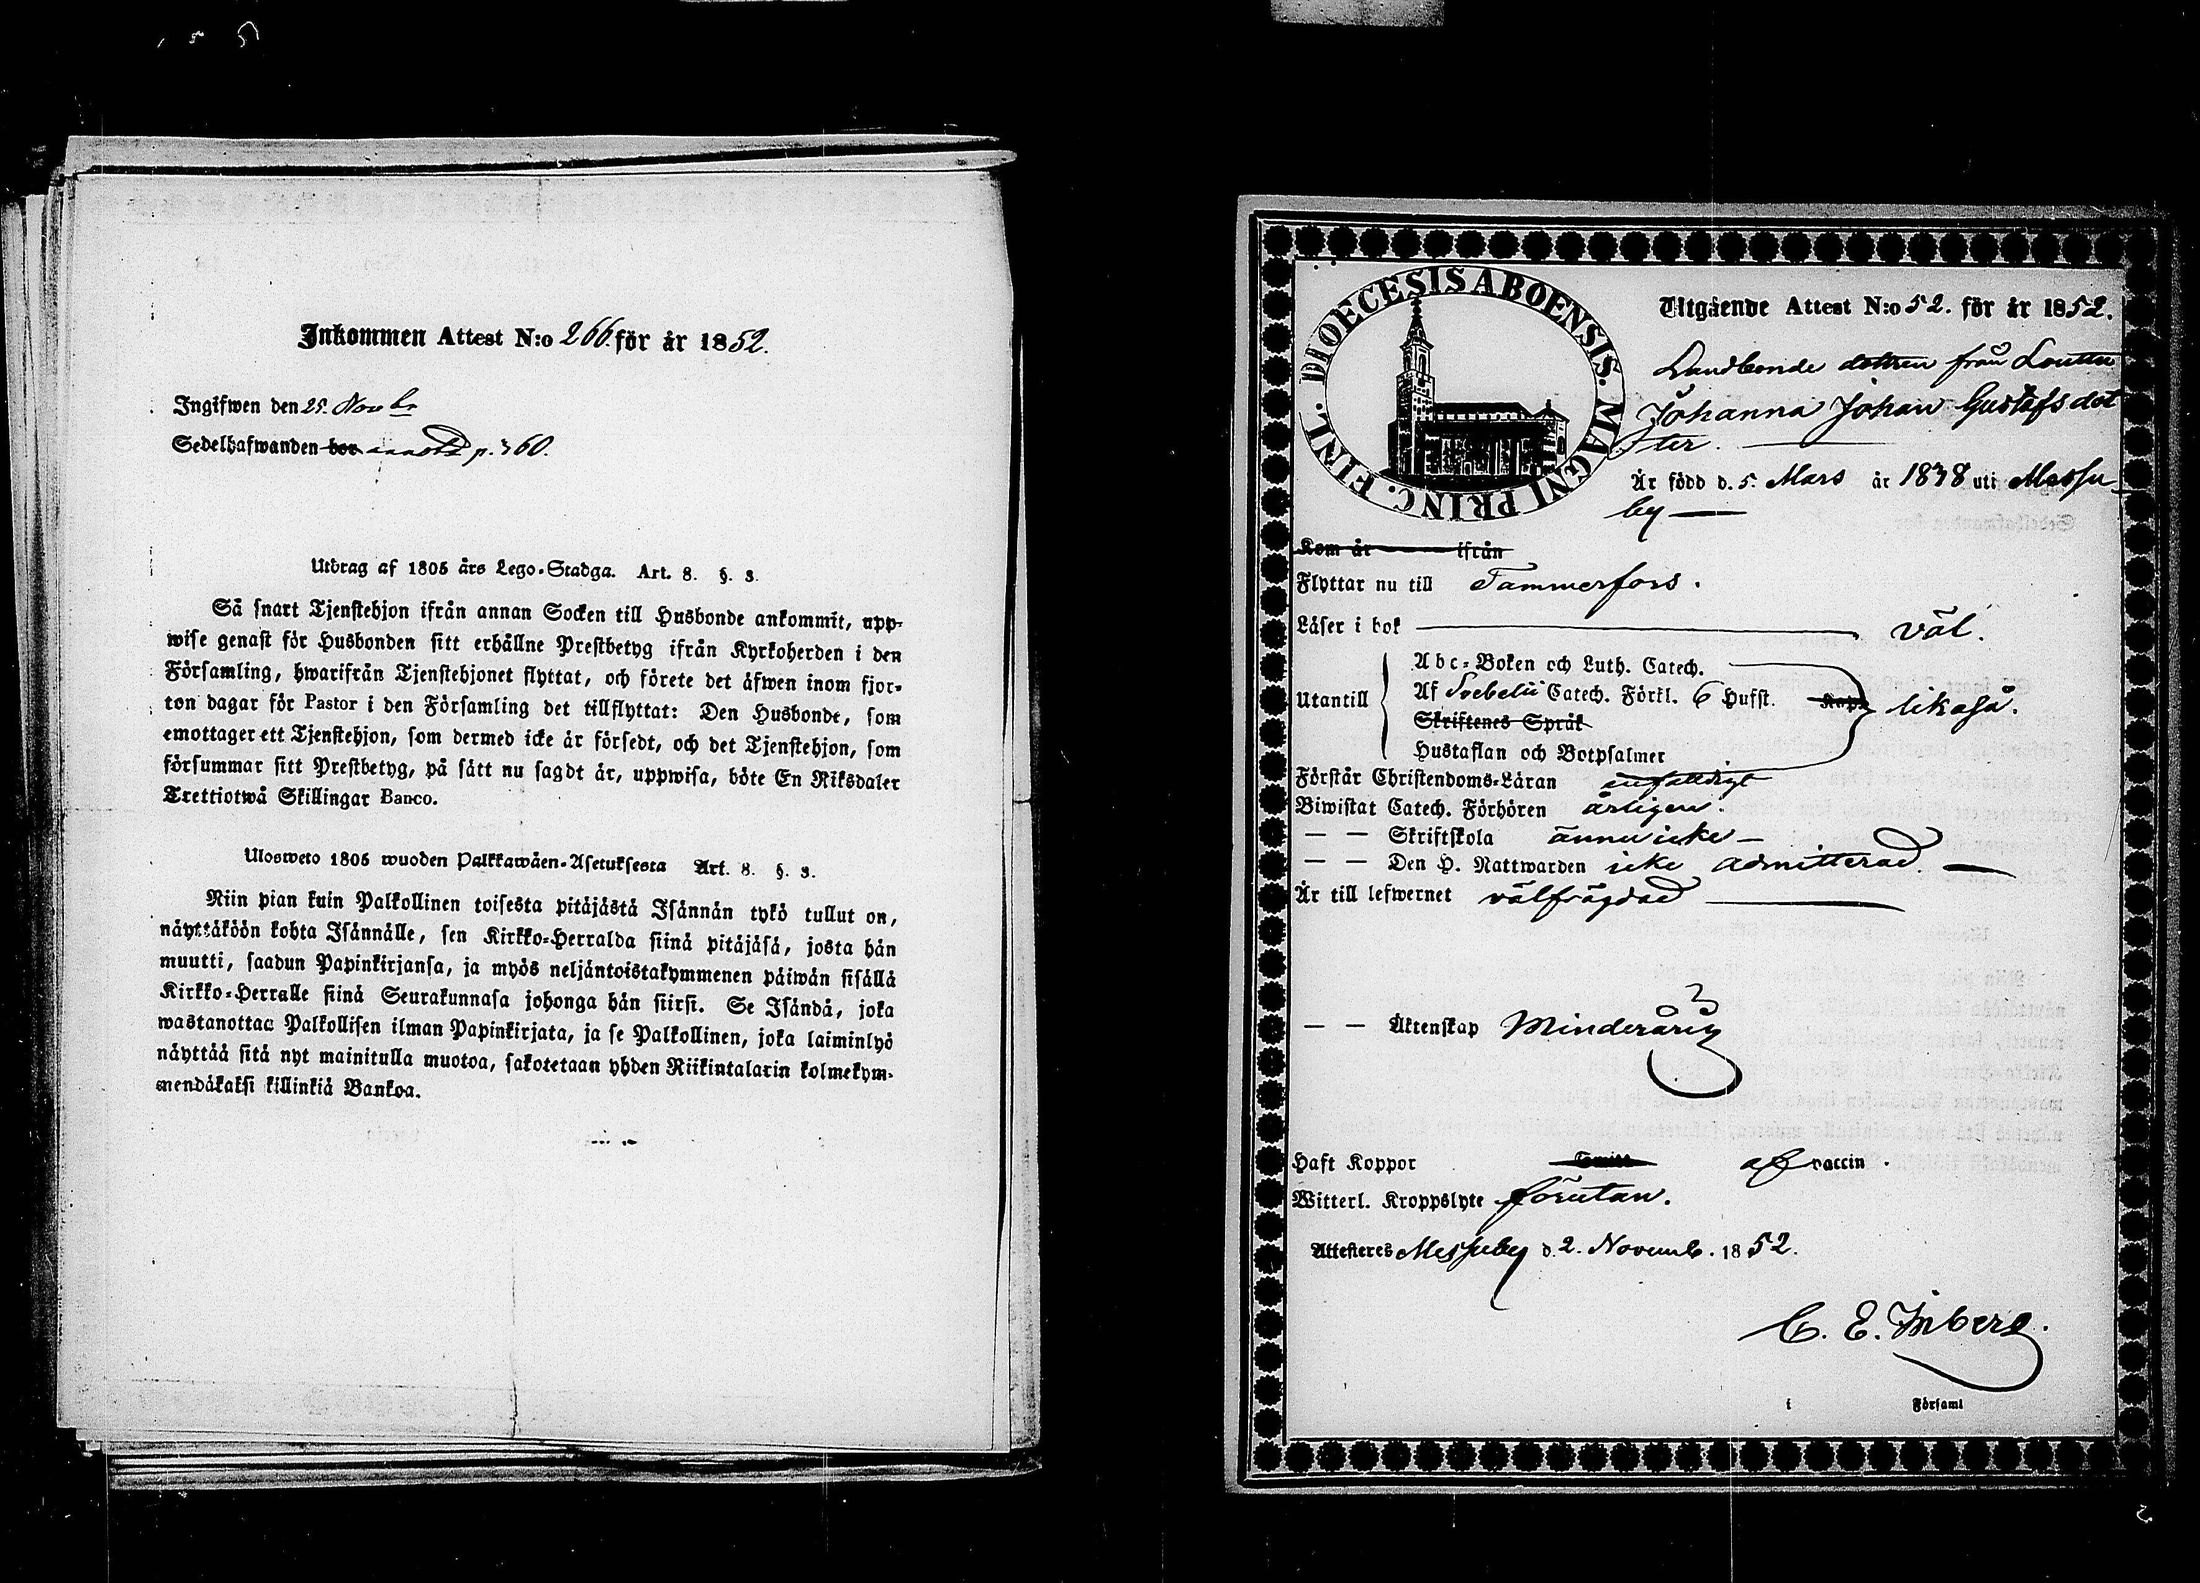 Inkommen Attest N:o 266 för år 1852.
Ingifwen den 25. Novbr
Sedelhafwanden bor annotd p. 360.
Utdrag af 1805 års Lego-Stadga. Art. 8. §. 3.
Så snart Tjenstehjon ifrån annan Socken till Husbonde ankommit, upp-
wise genast för Husbonden sitt erhållne Prestbetyg ifrån Kyrkoherden i den
Församling, hwarifrån Tjenstehjonet flyttat, och förete det äfwen inom fjor-
ton dagar för Pastor i den Församling det tillflyttat: Den Husbonde, som
emottager ett Tjenstehjon, som dermed icke är försedt, och det Tjenstehjon, som
försummar sitt Prestbetyg, på sätt nu sagdt är, uppwisa, böte En Riksdaler
Trettiotwå Skillingar Banco.
Ulosweto 1805 wuoden Palkkawäen-Asetuksesta Art. 8. §. 3.
Niin pian kuin Palkollinen toisesta pitäjästä Isännän tykö tullut on,
näyttäköön kohta Isännälle, sen Kirkko-Herralda siinä pitäjäsä, josta hän
muutti, saadun Papinkirjansa, ja myös neljäntoistakymmenen päiwän sisällä
Kirkko-Herralle siinä Seurakunnasa johonga hän siirsi. Se Isändä, joka
wastanottaa Palkollisen ilman Papinkirjata, ja se Palkollinen, joka laiminlyö
näyttää sitä nyt mainitulla muotoa, sakotetaan yhden Riikintalarin kolmekym-
mendäkaksi killinkiä Bankoa.
DIOECESIS ABOENSIS. MAGNI PRINC. FINL.
Utgående Attest N:o 52. för år 1852.
Landbonde dottren från
Johanna Johan Gustafsdot
ter.
Är född d. 5. Mars år 1838 uti Messu-
by
Kom år ifrån
Flyttar nu till Tammerfors.
Läser i bok väl.
Abc-Boken och Luth. Catech.
Utantill Af Svebelii Catech. Förkl. 6 Hufst. Kap. likaså.
Skriftenes Språk
Hustaflan och Botpsalmer
Förstår Christendoms-Läran enfaldigt
Biwistat Catech. Förhören årligen.
— — Skriftskola ännu icke —
— — Den H. Nattwarden icke admitterad. —
Är till lefwernet välfrägdad
— — Äktenskap Minderårig
Haft Koppor af vaccin.
Witterl. Kroppslyte förutan.
Attesteres Messuby d. 2. Novemb. 1852.
C. E. Inberg.
i Församl